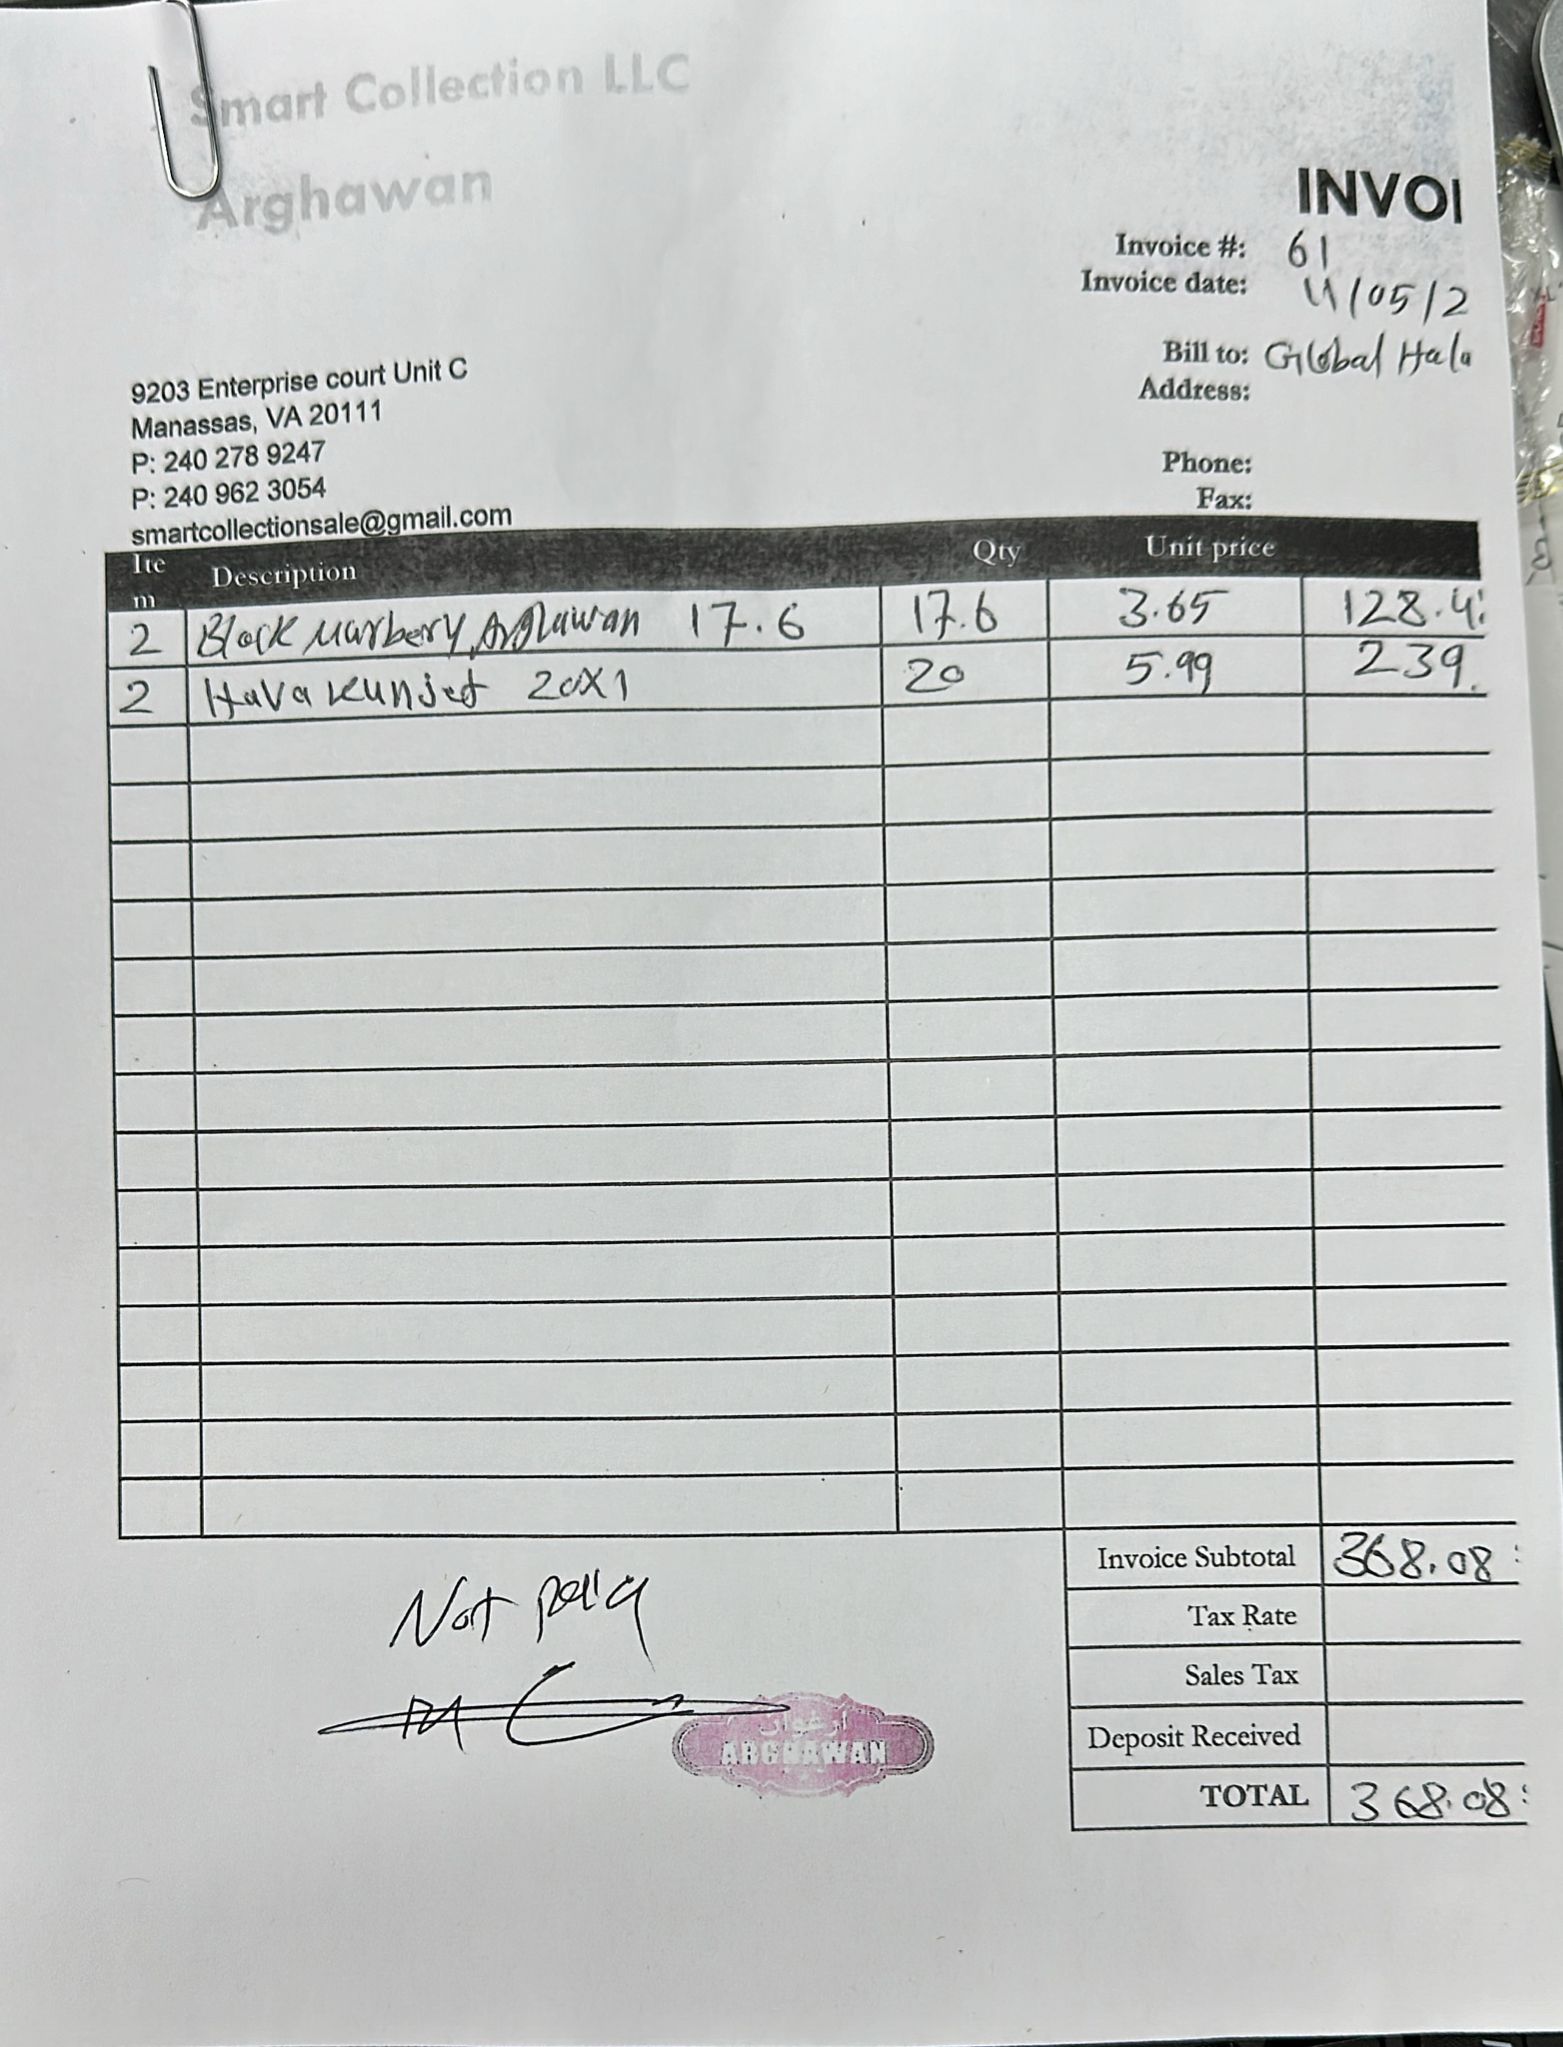 Smart Collection LLC
Arghawan
INVOI
Invoice #: 61
Invoice date: 11/05/2
Bill to: Global Hala
Address:
Phone:
Fax:
9203 Enterprise court Unit C
Manassas, VA 20111
P: 240 278 9247
P: 240 962 3054
smartcollectionsale@gmail.com
Item Description Qty Unit price
2 Black Marbery Arghawan 17.6 17.6 3.65 128.4
2 Hava kunjet 20X1 20 5.99 239.
Invoice Subtotal 368.08
Tax Rate
Sales Tax
Deposit Received
TOTAL 368.08
Not paid
ارغوان
ARGHAWAN